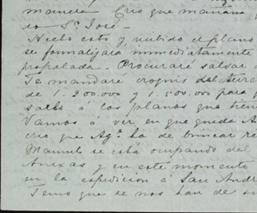 manera. Creo que mañana
do Sn. José.
Hecho esto y recibido el plano
se formalizará inmediatamente
propalada. Procuraré salvar
Te mandaré croquis del
de 1.200.000 y 1.500.000 para
salto á los planos que
Vamos á ver en que queda
creo que Agn. ha de
Manuel se está ocupando del
Anexas y en este momento
en la expedición á San Andr
Temo que se nos han de